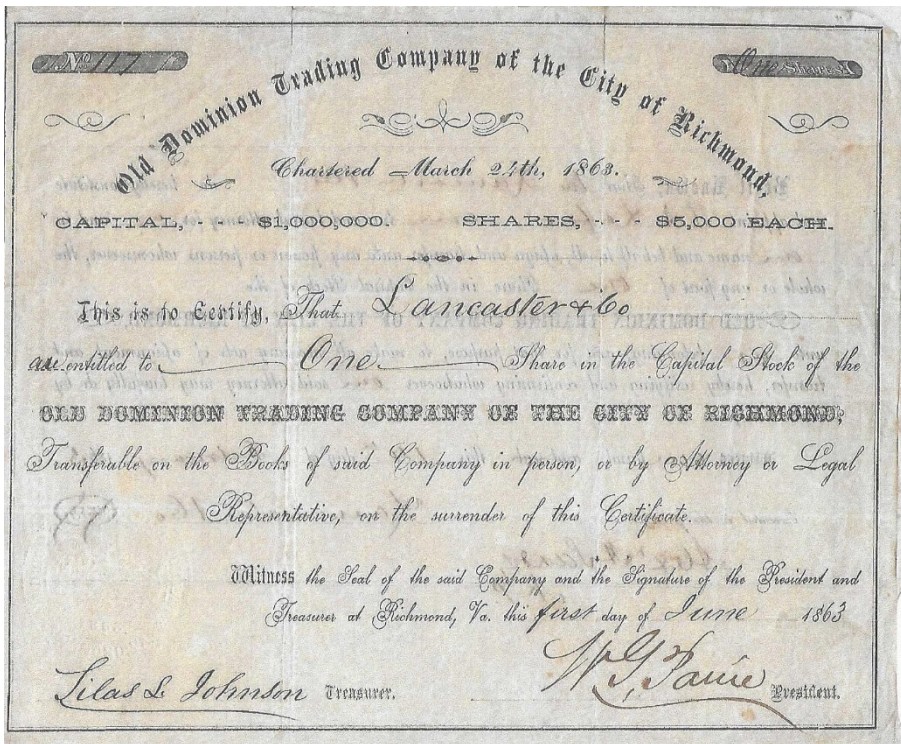 No 117
One Shares
Old Dominion Trading Company of the City of Richmond,
Chartered March 24th, 1863.
CAPITAL, - - $1,000,000. SHARES, - - $5,000 EACH.
This is to Certify, That Lancaster & Co
are entitled to One Share in the Capital Stock of the
OLD DOMINION TRADING COMPANY OF THE CITY OF RICHMOND,
Transferable on the Books of said Company in person, or by Attorney or Legal
Representative, on the surrender of this Certificate.
Witness the Seal of the said Company and the Signature of the President and
Treasurer at Richmond, Va. this first day of June 1863
Silas L Johnson Treasurer. W G Paine President.